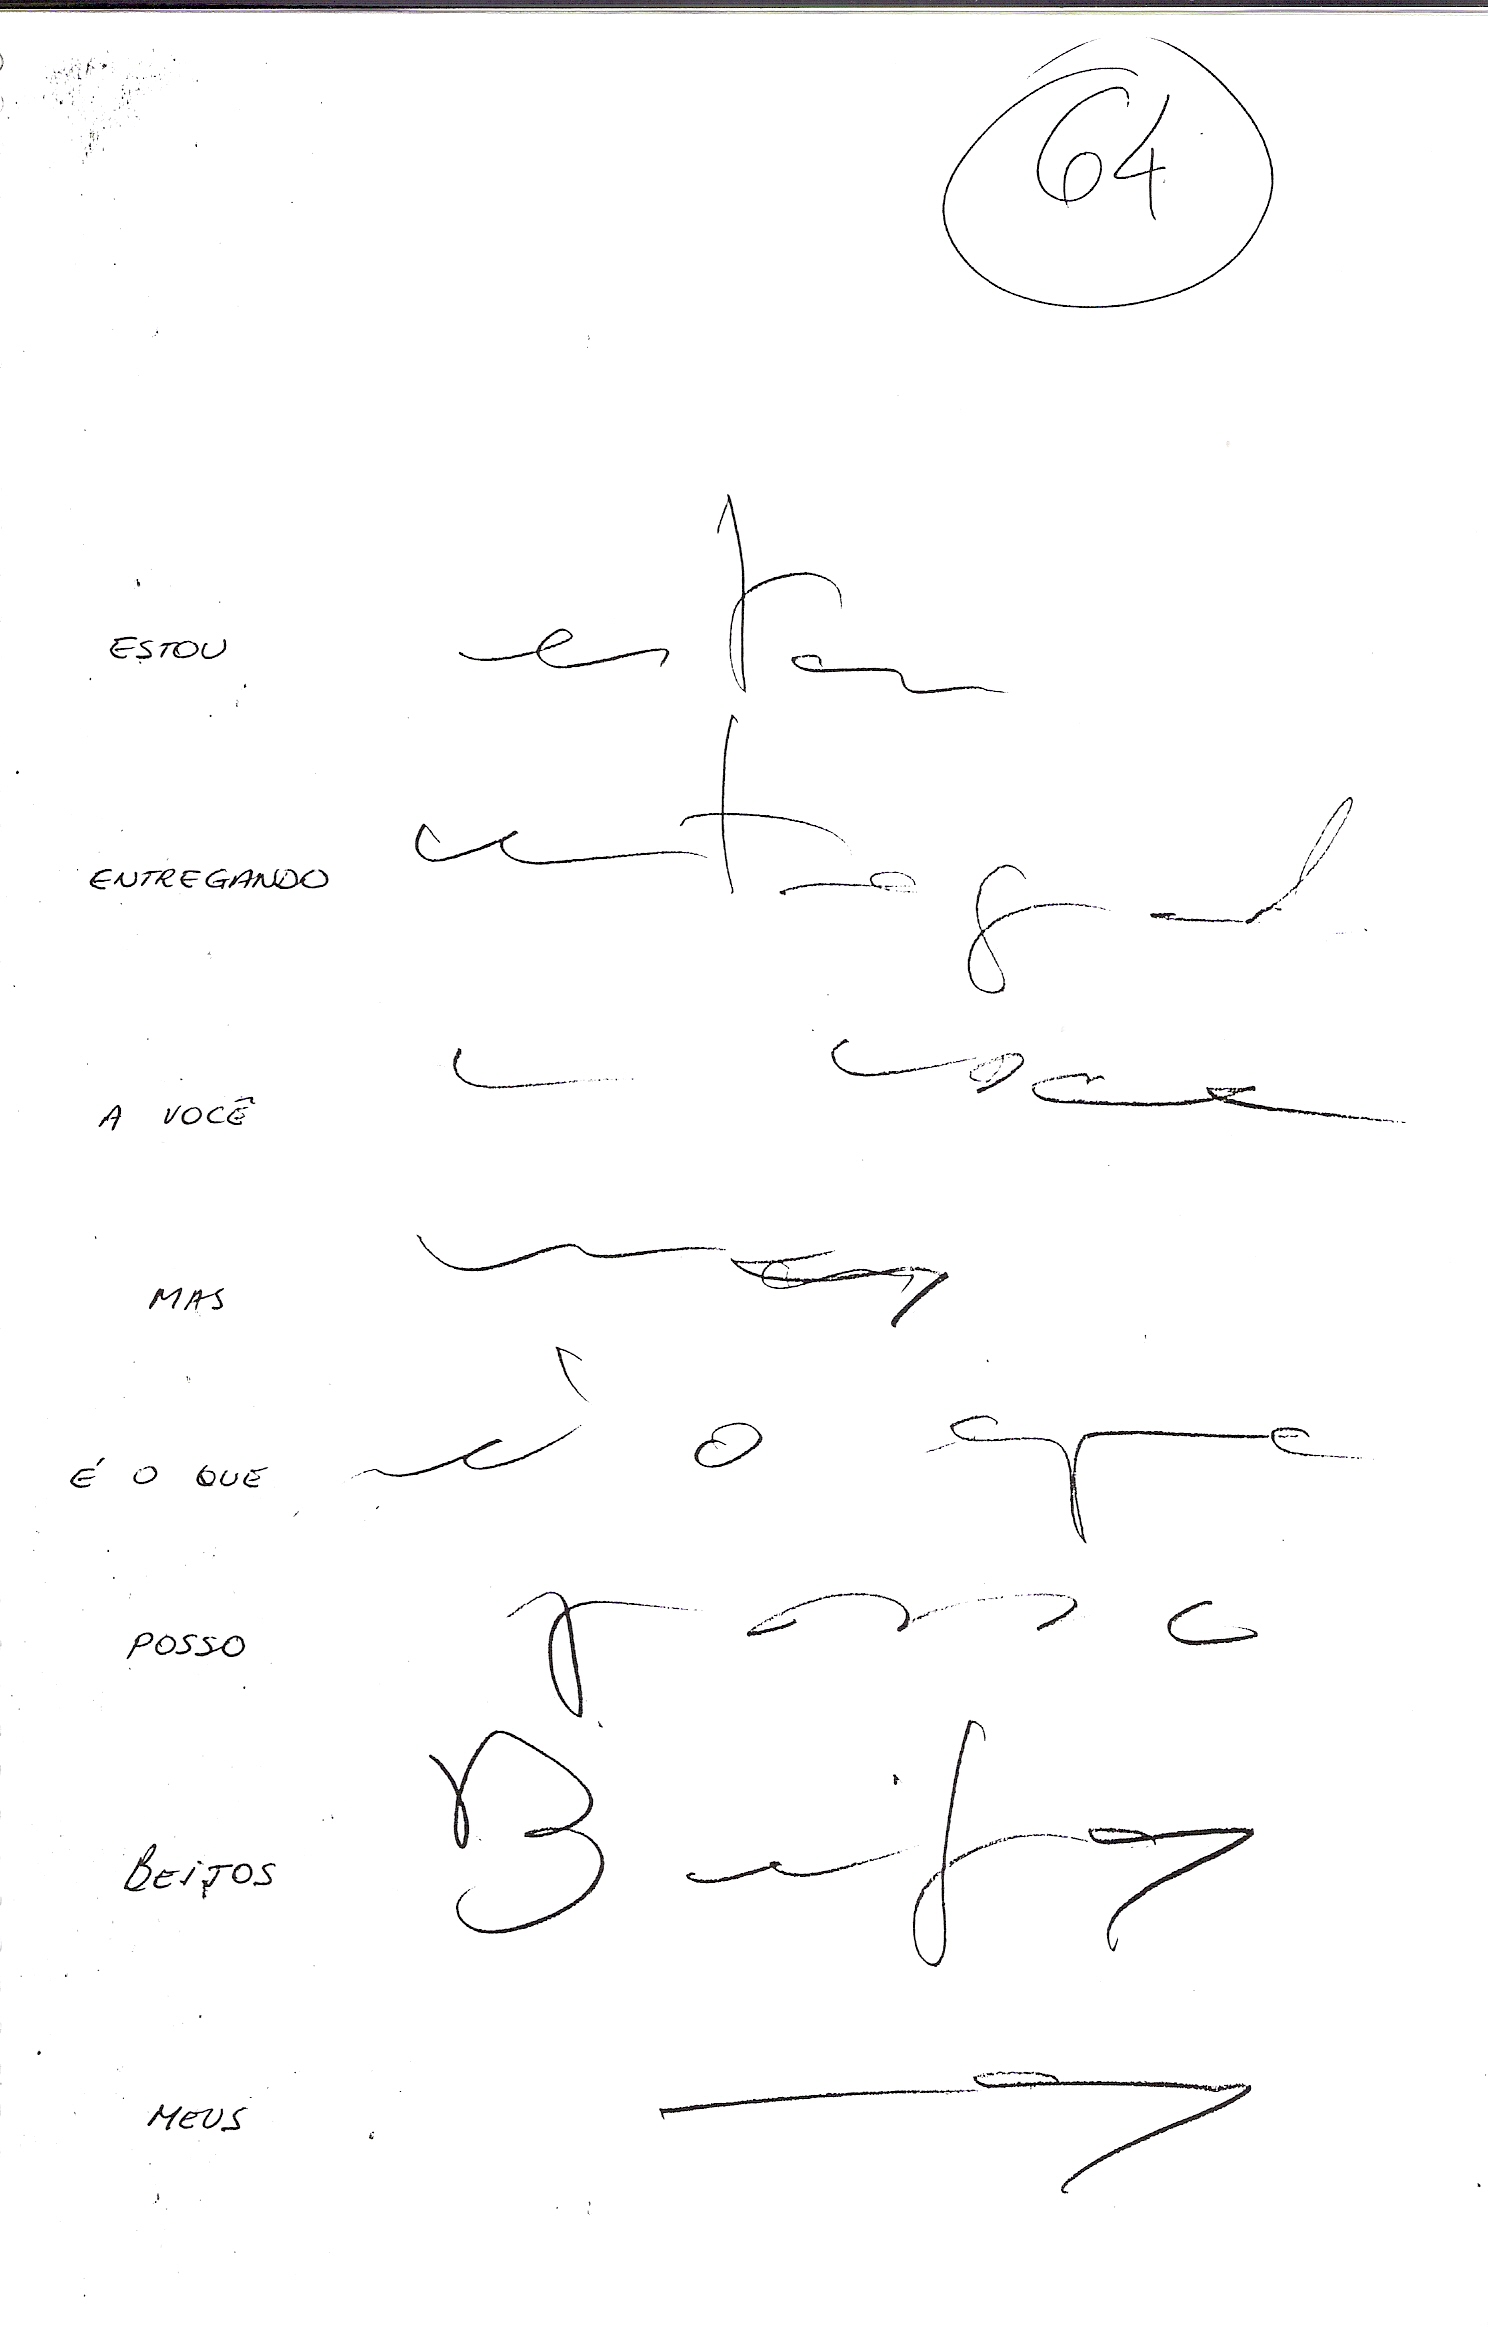 64
ESTOU estou
ENTREGANDO entregand
A VOCÊ a você
MAS mas
É O QUE é o que
POSSO posso
BEIJOS Beijos
MEUS meus